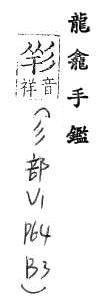 龍龕手鑑
音
祥
(彡部V1
P64
B3)